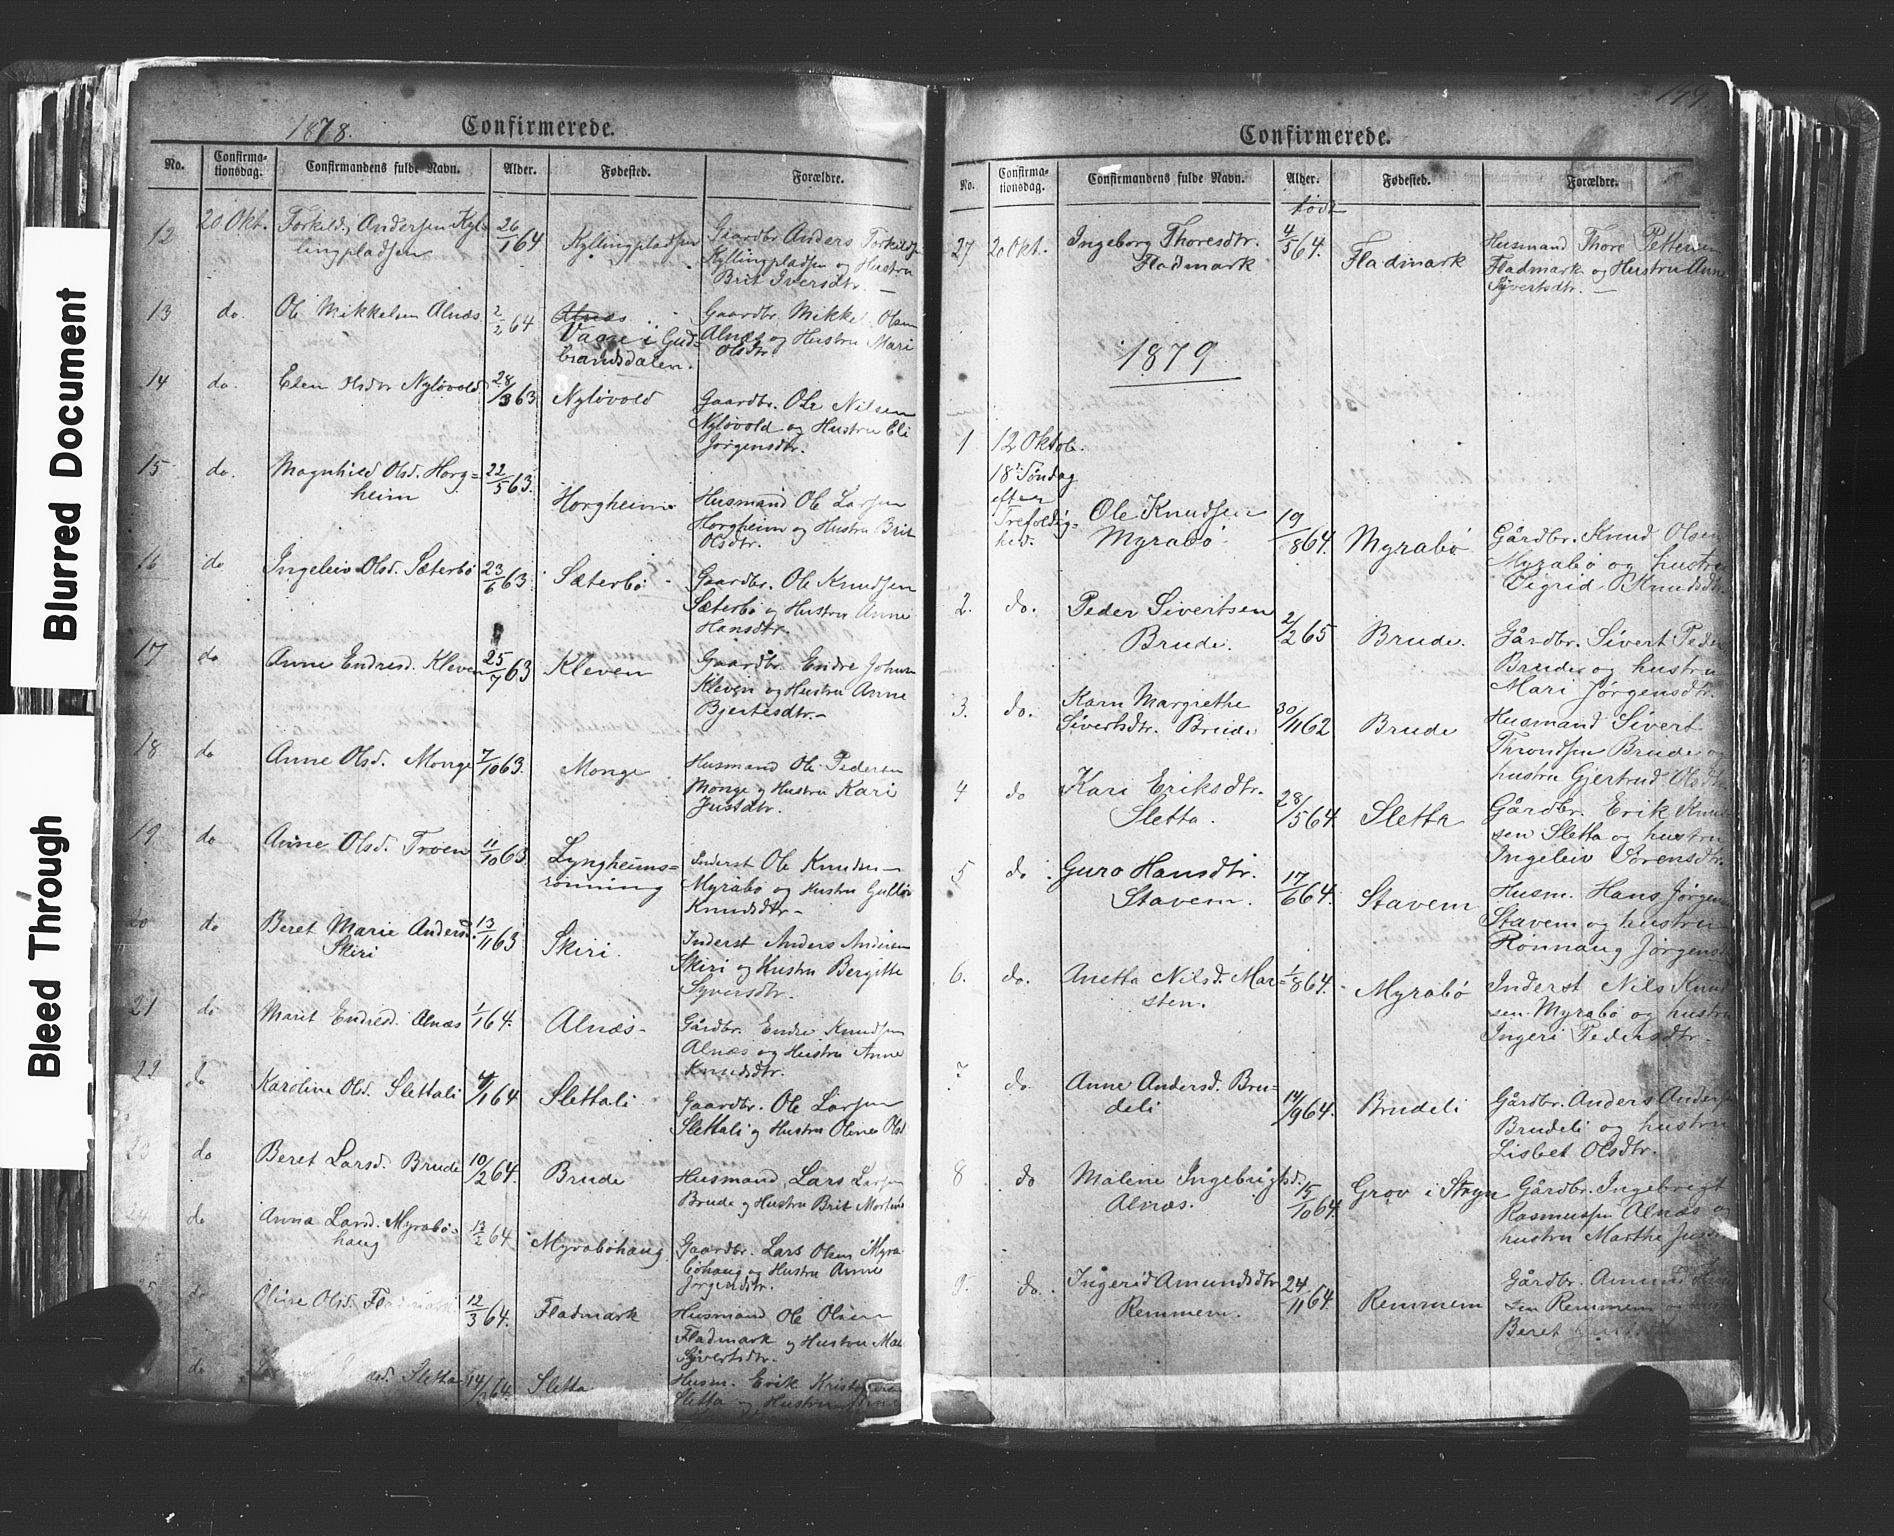 Blurred Document
Bleed Through
1878.
Confirmerede.
No. Confirma-tionsdag. Confirmandens fulde Navn. Alder. Fødested. Forældre.
12 20 Okt. Torkild Andersen Kyl- 26/1 64 Kyllingpladsen Gaardbr. Anders Torkilds.
lingpladsen Kyllingpladsen og Hustru
Brit Iversdtr. —
13 do. Ole Mikkelsen Alnæs 2/2 64 Alnæs Gaardbr. Mikkel Olsen
Vaage i Gud- Alnæs og Hustru Mari
brandsdalen. Olsdtr.
14 do. Eten Olsdtr Nyløvold 28/3 63 Nyløvold Gaardbr. Ole Nilsen
Nyløvold og Hustru Eli
Jørgensdtr.
15 do. Magnhild Olsd. Horg- 22/5 63. Horgheim Husmand Ole Larsen
heim Horgheim og Hustru Brit
Olsdtr.
16 do Ingeleiv Olsd. Sæterbø 23/6 63 Sæterbø Gaardbr. Ole Knudsen
Sæterbø og Hustru Anne
Hansdtr.
17 do Anne Endresd. Kleven 25/7 63 Kleven Gaardbr. Endre Johnsen
Kleven og Hustru Anne
Bjertesdtr. —
18 do Anne Olsd. Monge 7/10 63. Monge Husmand Ole Pedersen
Monge og Hustru Kari
Justdtr.
19 do Anne Olsd. Troen 11/10 63. Lyngheims- Inderst Ole Knudsen
rønning Myrabø og Hustru
Knudsdtr —
20 do Beret Marie Andersd. 13/11 63 Skiri. Inderst Anders Andersen
Skiri Skiri og Hustru Bergitte
Syversdtr.
21 do Marit Endresd. Alnæs 1/1 64. Alnæs Gårdbr. Endre Knudsen
Alnæs og Hustru Anne
Knudsdtr.
22 do Karoline Olsd. Slettali 4/1 64 Slettali Gaardbr. Ole Larsen
Slettali og Hustru Oline Olsd
23 do Beret Larsd. Brude 10/2 64. Brude Husmand Lars Larsen
Brude og Hustru Brit Mortensd
24 do Anna Larsd. Myrabø- 13/2 64 Myrabøhaug Gaardbr. Lars Olsen Myra-
haug bøhaug og Hustru Anne
Jørgensdtr.
25 do Oline Olsd. Fladmark 12/3 64. Fladmark Husmand Ole Olsen
Fladmark og Hustru Mari
Syvertsdtr.
do Sletta 14/ 64. Sletta Husm. Erik
Sletta og Hustru
Confirmerede.
No. Confirma-tionsdag. Confirmandens fulde Navn. Alder. Fødested. Forældre.
født
27 20 Okt. Ingeborg Thoresdtr. 4/5 64. Fladmark Husmand Thore Pettersen
Fladmark Fladmark og Hustru Anne
Syvertsdtr. —
1879
1 12 Oktob.
18de Søndag
efter
Trefoldig-
hed. Ole Knudsen 19/8 64. Myrabø Gårdbr. Knud Olsen
Myrabø Myrabø og hustru
Sigrid Knudsdtr.
2. do. Peder Sivertsen 2/2 65 Brude. Gårdbr. Sivert Peder
Brude. Brude og hustru
Mari Jørgensdtr.
3. do. Karn Margrethe 30/11 62 Brude Husmand Sivert
Sivertsdtr. Brude Throndsen Brude og
hustru Gjertrud Olsdtr
4 do Kari Eriksdtr. 28/5 64. Sletta Gårdbr. Erik Knud
Sletta. sen Sletta og hustru
Ingeleiv Sørensdtr.
5 do Guro Hansdtr. 17/6 64. Stavem Husm. Hans Jørgen
Stavem. Stavem og hustru
Rønnaug Jørgensd
6. do. Anetta Nilsd. Mar- 1/8 64. Myrabø Inderst Nils Knud
sten. sen Myrabø og hustru
Ingeri Pedersdtr.
7 do. Anne Andersd. Bru- 14/9 64. Brudeli Gårdbr. Anders Anders
deli Brudeli og hustru
Lisbet Olsdtr.
8 do Malene Ingebrigtsd. 15/10 64. Grov i Stryn Gårdbr. Ingebrigt
Alnæs. Rasmussen Alnæs og
hustru Marthe
9. do. Ingerid Amundsdtr 24/11 64. Remmem Gårdbr. Amund
Remmem. sen Remmem og
Beret